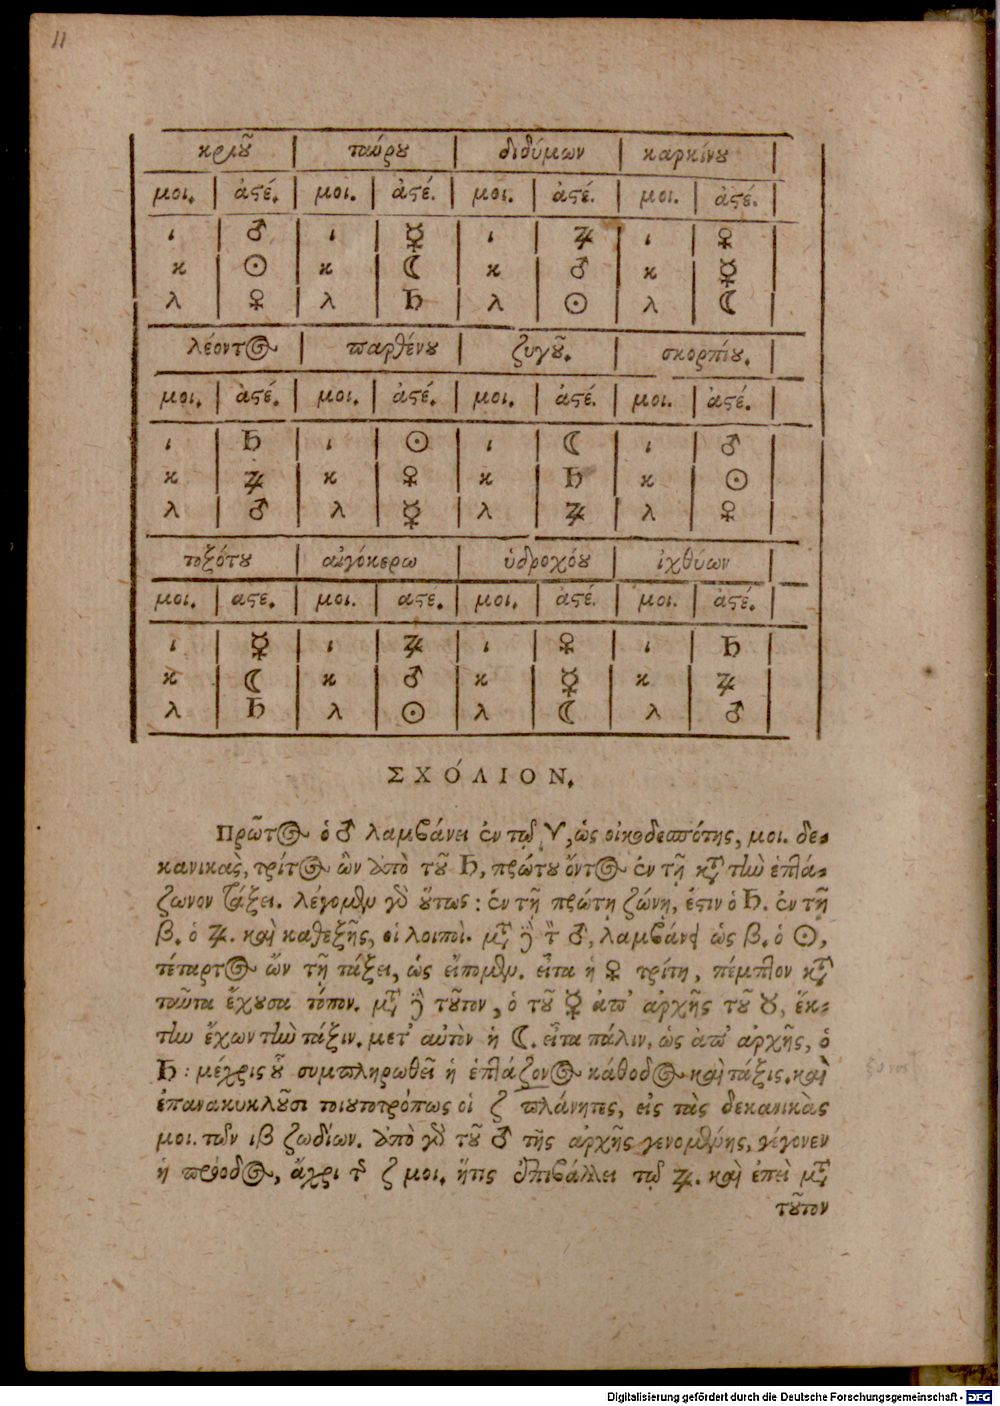 11
κριοῦ | ταύρου | διδύμων | καρκίνου
μοι. | ἀςέ. | μοι. | ἀςέ. | μοι. | ἀςέ. | μοι. | ἀςέ.
ι | ♂ | ι | ☿ | ι | ♃ | ι | ♀
κ | ☉ | κ | ☾ | κ | ♂ | κ | ☿
λ | ♀ | λ | ♄ | λ | ☉ | λ | ☾
λέοντος | παρθένου | ζυγοῦ. | σκορπίου.
μοι. | ἀςέ. | μοι. | ἀςέ. | μοι. | ἀςέ. | μοι. | ἀςέ.
ι | ♄ | ι | ☉ | ι | ☾ | ι | ♂
κ | ♃ | κ | ♀ | κ | ♄ | κ | ☉
λ | ♂ | λ | ☿ | λ | ♃ | λ | ♀
τοξότου | αἰγόκερω | ὑδροχόου | ἰχθύων
μοι. | αςε. | μοι. | αςε. | μοι. | ἀςέ. | μοι. | ἀςέ.
ι | ☿ | ι | ♃ | ι | ♀ | ι | ♄
κ | ☾ | κ | ♂ | κ | ☿ | κ | ♃
λ | ♄ | λ | ☉ | λ | ☾ | λ | ♂
ΣΧΌΛΙΟΝ.
Πρῶτος ὁ ♂ λαμβάνει ἐν τῷ ♈, ὡς οἰκοδεσπότης, μοι. δε-
κανικὰς, τρίτος ὢν ἀπὸ τοῦ ♄, πρώτου ὄντος ἐν τῇ κατὰ τὴν ἑπτά-
ζωνον τάξει. λέγομεν γὸ οὕτως: ἐν τῇ πρώτῃ ζώνῃ, ἐςιν ὁ ♄. ἐν τῇ
β. ὁ ♃. καὶ καθεξῆς, οἱ λοιποὶ. μετὰ δὲ τὸν ♂, λαμβάνει ὡς β. ὁ ☉,
τέταρτος ὢν τῇ τάξει, ὡς εἴπομεν. εἶτα ἡ ♀ τρίτη, πέμπτον κατὰ
ταῦτα ἔχουσα τόπον. μετὰ δὲ τοῦτον, ὁ τοῦ ☿ ἀπ' αρχῆς τοῦ ♉, ἕκ-
την ἔχων τὴν τάξιν. μετ' αὐτὸν ἡ ☾. εἶτα πάλιν, ὡς ἀπ' αρχῆς, ὁ
♄: μέχρις οὗ συμπληρωθεῖ ἡ ἑπτάζονος κάθοδος καὶ τάξις. καὶ
ἐπανακυκλοῦσι τοιουτοτρόπως οἱ ζ πλάνητες, εἰς τὰς δεκανικὰς
μοι. τῶν ιβ ζωδίων. ἀπὸ γὸ τοῦ ♂ τῆς αρχῆς γενομένης, γέγονεν
ἡ πρόοδος, ἄχρι τῶν ζ μοι. ἥτις ἐπιβάλλει τῷ ♃. καὶ ἐπεὶ μετὰ
τοῦτον
Digitalisierung gefördert durch die Deutsche Forschungsgemeinschaft - DFG